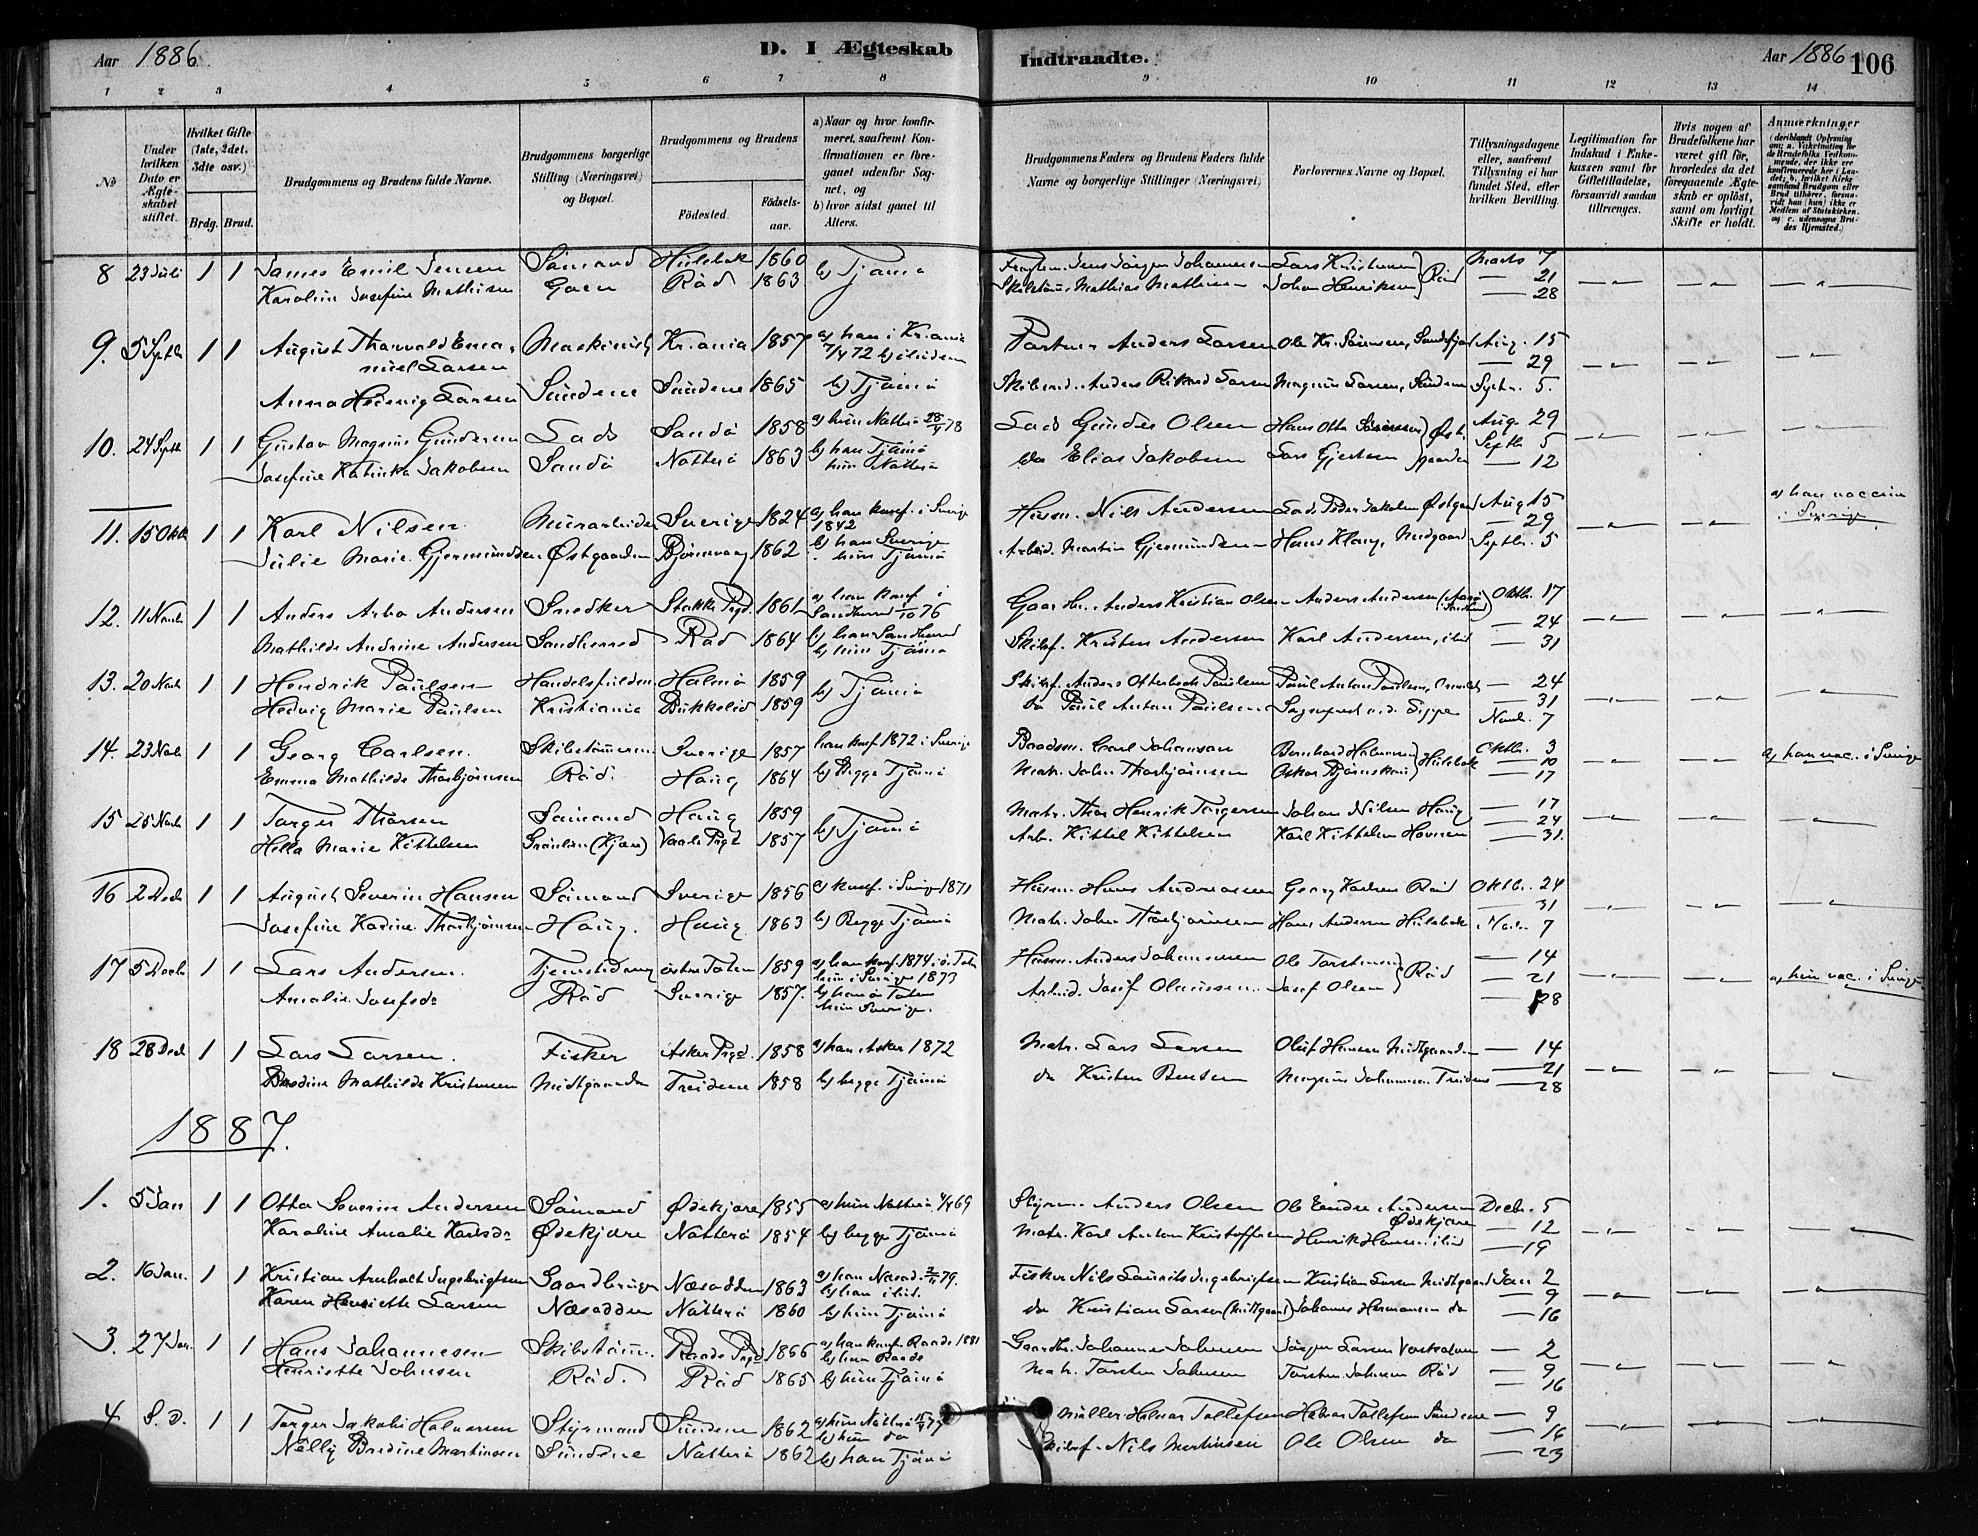 Aar 1886.
D. I Ægteskab
Indtraadte.
Aar 1886
106
1 2 3 4 5 6 7 8 9 10 11 12 13 14
No
Under hvilken Dato er Ægteskabet stiftet.
Hvilket Gifte (1ste, 2det, 3die osv.)
Brdg. Brud.
Brudgommens og Brudens fulde Navne.
Brudgommens borgerlige Stilling (Næringsvei) og Bopæl.
Brudgommens og Brudens
Fødested.
Fødselsaar.
a) Naar og hvor konfirmeret, saafremt Konfirmationen er foregaaet udenfor Sognet, og
b) hvor sidst gaaet til Alters.
Brudgommens Faders og Brudens Faders fulde Navne og borgerlige Stillinger (Næringsvei)
Forlovernes Navne og Bopæl.
Tillysningsdagene eller, saafremt Tillysning ei har fundet Sted, efter hvilken Bevilling.
Legitimation for Indskud i Enkekassen samt for Giftetilladelse, forsaavidt saadan tiltrænges.
Hvis nogen af Brudefolkene har været gift før, hvorledes da det foregaaende Ægteskab er opløst, samt om lovligt Skifte er holdt.
Anmærkninger
8 23 Juli 1 1 James Emil Jensen Sømand Hulebak 1860 b) Tjømø Jens Jørgen Johannesen Lars Kristensen Marts 7
Karoline Josefine Mathisen Gaen Rød 1863 Mathias Mathisen Johan Henriksen Rød 21
28
9. 5 Septb 1 1 August Thorvald Emanuel Larsen Maskinist Kr.ania 1857 a) han i Kr.ania 72 Anders Larsen Ole Kr. Sørensen, Aug. 15
29
Anna Hedevig Larsen Sundene Sundene 1865 b) Tjømø Anders Rikard Larsen Magnus Larsen, Septr. 5.
10. 24 Septb 1 1 Gustav Magnus Gundersen Lods Sandø 1858 a) hun Nøtterø 78 Lods Gunder Olsen Hans Otto Aug. 29
Josefine Katinka Jakobsen Sandø Nøtterø 1863 b) han Tjømø hun Nøtterø do Elias Jakobsen Lars Gjertsen Septb 5
12
11. 15 Oktb 1 1 Karl Nilsen Murarbeider Sverige 1824 a) han konf. i Sverige 1842 Husm. Nils Andersen Lods Peder Jakobsen Østgaard Aug 15 a) han vaccin i Sverige
29
Julie Marie Gjermundsen Østgaarden 1862 b) han Sverige hun Tjømø Arbeid. Martin Gjermundsen Hans Klaus, Midgaard Septbr. 5
12. 11 Novb 1 1 Anders Arbo Andersen Snedker Stokke Prgd. 1861 a) han konf i Sandherred 76 Gaardbr. Anders Kristian Olsen Anders Andersen Oktbr. 17
24
Mathilde Andrine Andersen Sandherred Rød 1864 b) han Sandherred b) hun Tjømø Skibsf. Kristen Andersen Karl Andersen, ibid 31
13. 20 Novb 1 1 Hendrik Paulsen Handelsfuldm. Holmø 1859 b) Tjømø Skibsf. Anders Otterbech Paulsen Paul Anton Paulsen, 24
31
Hedvig Marie Paulsen Kristiania Bukkelid 1859 do Paul Anton Paulsen Novb. 7
14. 23 Novb 1 1 Georg Carlsen. Skibstømmerm. Sverige 1857 han konf 1872 i Sverige Baadsm. Carl Johansson Bernhard Halvorsen Oktbr. 3 a) han vac. i Sverige
10
Emma Mathilde Thorbjørnsen Rød. Haug 1864 b) Begge Tjømø Matr. John Thorbjørnsen Hulebak 17
15 25 Novb 1 1 Torger Thorsen Sømand Haug 1859 b) Tjømø Matr. Thor Henrik Torgersen Johan Nilsen Haug 17
24
Hella Marie Kittelsen (Kjær) Vaale Prgd 1857 Arb. Kittel Kittelsen Karl Kittelsen 31.
16 2 Decb 1 1 August Severin Hansen Sømand Sverige 1856 a) konf. i Sverige 1871 Husm. Hans Andreasen Georg Karlsen Rød Oktbr. 24
31
Josefine Karine Thorbjørnsen Haug. Haug 1863 b) Begge Tjømø Matr. John Thorbjørnsen Hans Andersen Hulebak Nov. 7
17 5 Decb 1 1 Lars Andersen. Tjenestedreng østre Toten 1859 a) han konf. 1874 i ø. Toten hun i Sverige 1873 Husm. Anders Johannesen Ole Torstensen 14
21
Amalie Josefsdr Rød Sverige 1857. b) han ø Toten hun Sverige. Arbeid. Josef Olaussen Josef Olsen Rød 28 a) hun vac. i Sverige
18 28 Decb 1 1 Lars Larsen. Fisker Asker Prgd. 1858 a) han Asker 1872 Matr. Lars Larsen Oluf Hansen Midtgaarden 14
21
Bredine Mathilde Kristensen Midtgaarden Treidene 1858 b) begge Tjømø do Kristen Bentsen Magnus Johannesen Treidene 28
1887.
1. 5 Jan 1 1 Otto Severin Andersen Sømand Ødekjære 1855 a) hun Nøtterø 4/4 69 Styrm. Anders Olsen Ole Endre Andersen Ødekjære Decb. 5
12
Karoline Amalie Karlsdr Ødekjære Nøtterø 1854 b) begge Tjømø Matr. Karl Anton Kristoffersen Henrik Hansen ibid 19
2. 16 Jan. 1 1 Kristian Arnholt Ingebrigtsen Gaardbruger Næsodden 1863 a) han Næsod. 79. b) han ibid. Fisker Nils Laurits Ingebrigtsen Kristian Larsen Midtgaard Jan 2
9
Karen Henriette Larsen Næsodden Nøtterø 1860 b) hun Tjømø do Kristian Larsen (Midtgaard) Johannes Hermansen do 16
3. 27 Jan. 1 1 Hans Johannesen Skibstømm. Raade Prgd 1866 a) han konf. Raade 1881 b) han Raade Gaardbr. Johannes Johnsen Jørgen Larsen 2
9
Henriette Johnsen Rød. Rød 1865 b) hun Tjømø Matr. Torsten Johnsen Torsten Johnsen Rød 16
4 S. D. 1 1 Torger Jakob Halvorsen Styrmand Sundene 1862 a) hun Nøtterø 77 b) hun do Møller Halvor Tollefsen Halvor Tollefsen Sundene 9
16
Nelly Bredine Martinsen Sundene Nøtterø 1862 b) han Tjømø Skibsf. Nils Martinsen Ole Olsen do 23